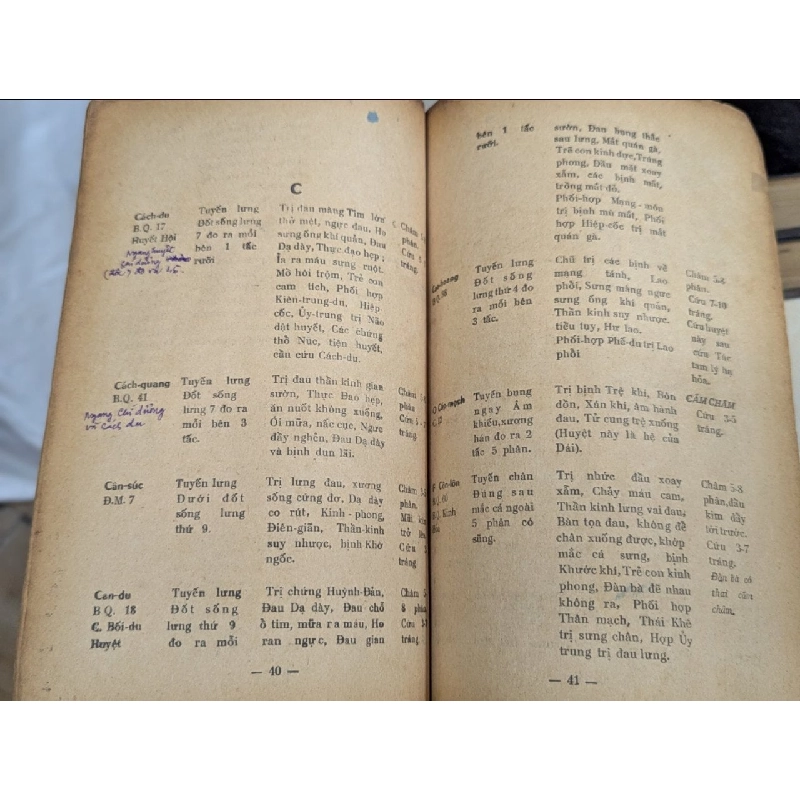 C
Cách-du
B.Q. 17
Huyết Hội
Ngang huyệt
Chí dương
Tuyến lưng
Đốt sống lưng
7 đo ra mỗi
bên 1 tấc
rưỡi
Trị đau màng Tim lớn
thở mệt, ngực đau, Ho
sưng ống khí quản, Đau
Dạ dày, Thực đạo hẹp;
Ỉa ra máu sưng ruột.
Mồ hôi trộm, Trẻ con
cam tích, Phối hợp
Kiên-trung-du, Hiệp-
cốc, Ủy-trung trị Não
dật huyết, Các chứng
thồ Núc, tiện huyết,
cần cứu Cách-du.
Cách-quang
B.Q. 41
Ngang Chí dương
và Cách du
Tuyến lưng
Đốt sống
lưng 7 đo ra
mỗi bên 3
tấc.
Trị đau thần kinh gian
sườn, Thực Đạo hẹp,
ăn nuốt không xuống,
Ói mửa, nấc cục, Ngực
đầy nghẽn, Đau Dạ dày
và bịnh dun lãi.
Cân-súc
Đ.M. 7
Tuyến lưng
Dưới đốt
sống lưng
thứ 9.
Trị lưng đau, xương
sống cứng đơ, Dạ dày
co rút, Kinh-phong,
Điên-giãn, Thần-kinh
suy nhược, bịnh Khờ
ngốc.
Can-du
B.Q. 18
C. Bối-du
Huyệt
Tuyến lưng
Đốt sống
lưng thứ 9
đo ra mỗi
Trị chứng Huỳnh-Đản,
Đau Dạ dày, Đau chỗ
ổ tim, mửa ra máu, Ho
ran ngực, Đau gian
Châm
8 phân
Cứu 3-7
tráng.
— 40 —
bên 1 tấc
rưỡi.
sườn, Đau bụng thắc
sau lưng, Mắt quáng gà,
Trẻ con kinh dực, Tráng
phong, Đầu mặt xoay
xẫm, các bịnh mắt,
tròng mắt đỏ.
Phối-hợp Mạng-môn
trị bịnh mù mắt, Phối
hợp Hiệp-cốc trị mắt
quáng gà.
B.Q. 38
Tuyến lưng
Đốt sống
lưng thứ 4 đo
ra mỗi bên
3 tấc.
Chủ trị các bịnh về
mạng tánh, Lao
phồi, Sưng màng ngực
sưng ống khí quản,
Thần kinh suy nhược.
tiều tuy, Hư lao.
Phối-hợp Phế-du trị Lao
phồi
Châm 5-6
phân.
Cứu 7-10
tráng.
Cứu huyệt
này sau
cứu Túc
tam lý hạ
hỏa.
Tuyến bụng
ngay Âm
khiếu, xương
háng đo ra 2
tấc 5 phân.
Trị bịnh Trệ khí, Bôn
đồn, Xán khí, âm hành
đau, Tử cung trệ xuống
(Huyệt này là hệ của
Dái).
CẤM CHÂM
Cứu 3-5
tráng.
Tuyến chân
Đúng sau
mắc cá ngoài
5 phân có
sũng.
Trị nhức đầu xoay
xẫm, Chảy máu cam,
Thần kinh lưng vai đau,
Bàn tọa đau, không để
chân xuống được, khớp
mắc cá sưng, bịnh
Khước khí, Trẻ con kinh
phong, Đàn bà đẻ nhau
không ra, Phối hợp
Thân mạch, Thái Khê
trị sưng chân, Hợp Ủy
trung trị đau lưng.
Châm 5-8
phân, đầu
kim đẩy
tới trước.
Cứu 3-7
tráng.
Đàn bà có
thai cấm
châm.
— 41 —